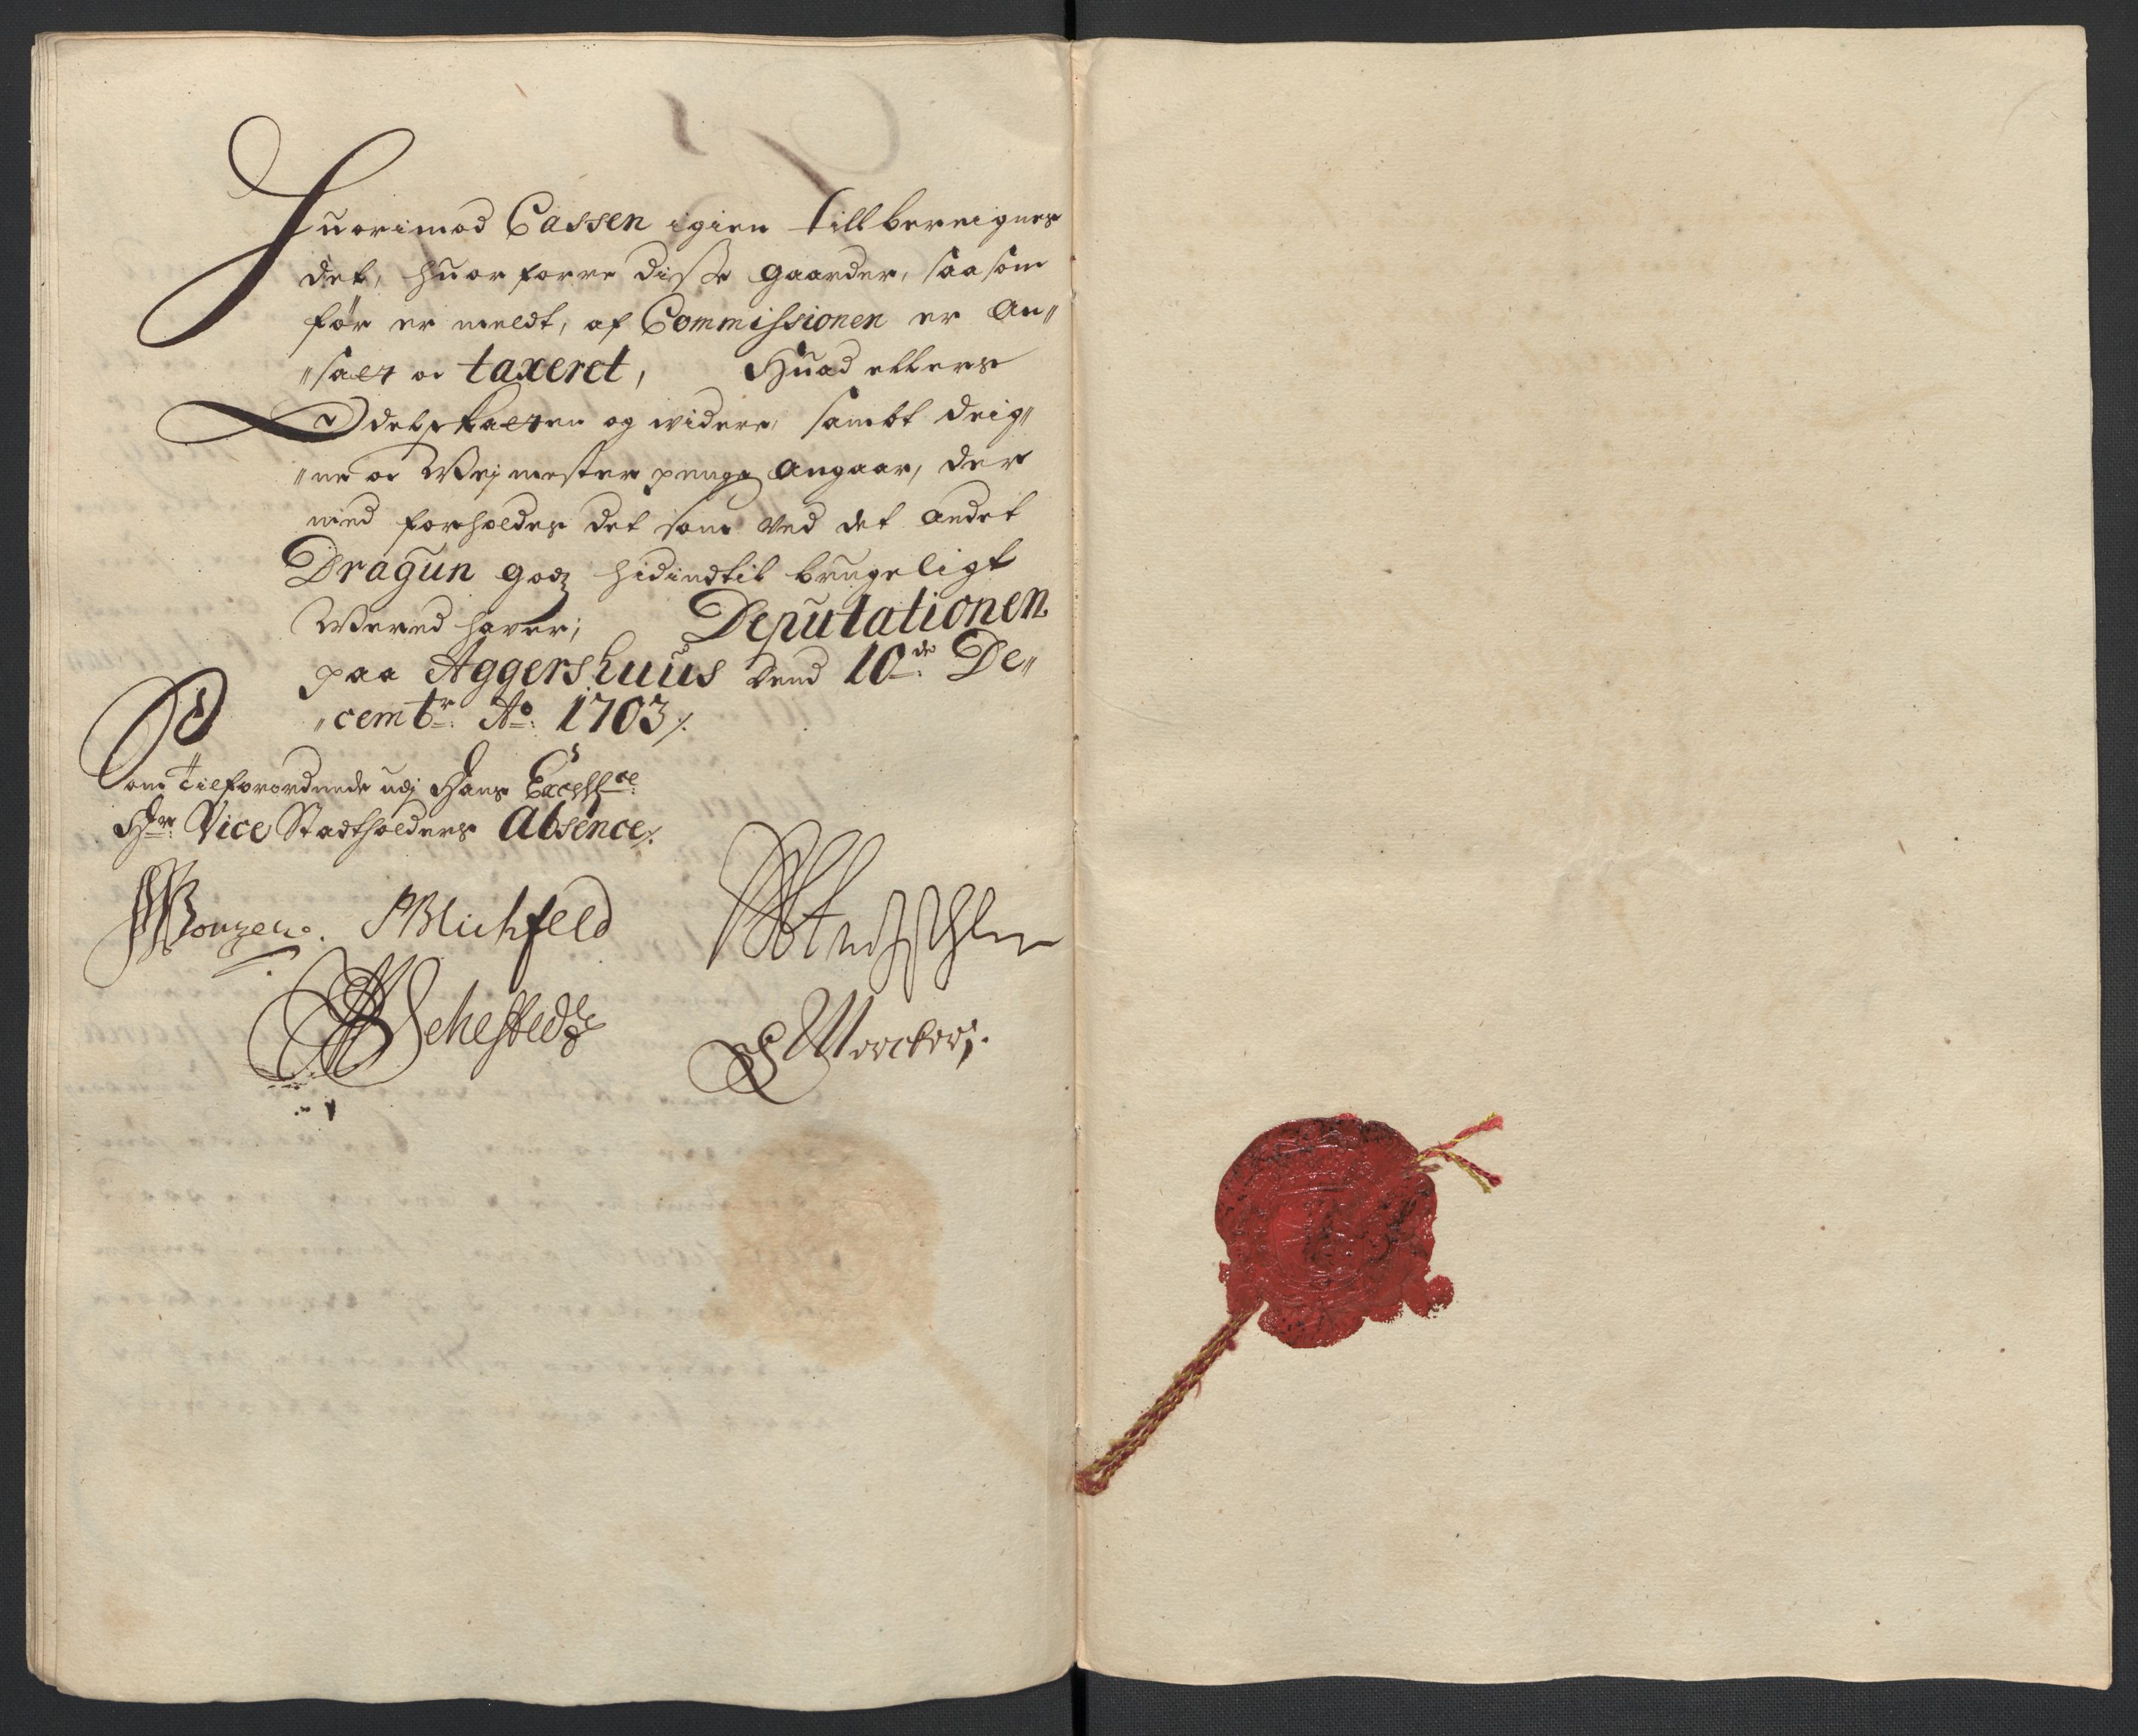 Huorimod Cassen igien tillbereignes
det, huorforre disse gaarder, saasom
før er meldt, af Commissionen er An„
„satt oc taxeret, Huad ellers
Odelskatten og videre, sambt deig„
„ne oc Weymester penge Angaar, der
med forholdes det som ved det andet
Dragun godz hidindtil brugeligt
Wered haver; Deputationen
paa Aggershuus dend 10de De„
„cembr: Ao: 1703 ⁒
Som Tilforordnede udj Hans Excellce:
Hr: Vice Stadtholders Absence ⁒
PBlichfeld
Sehested